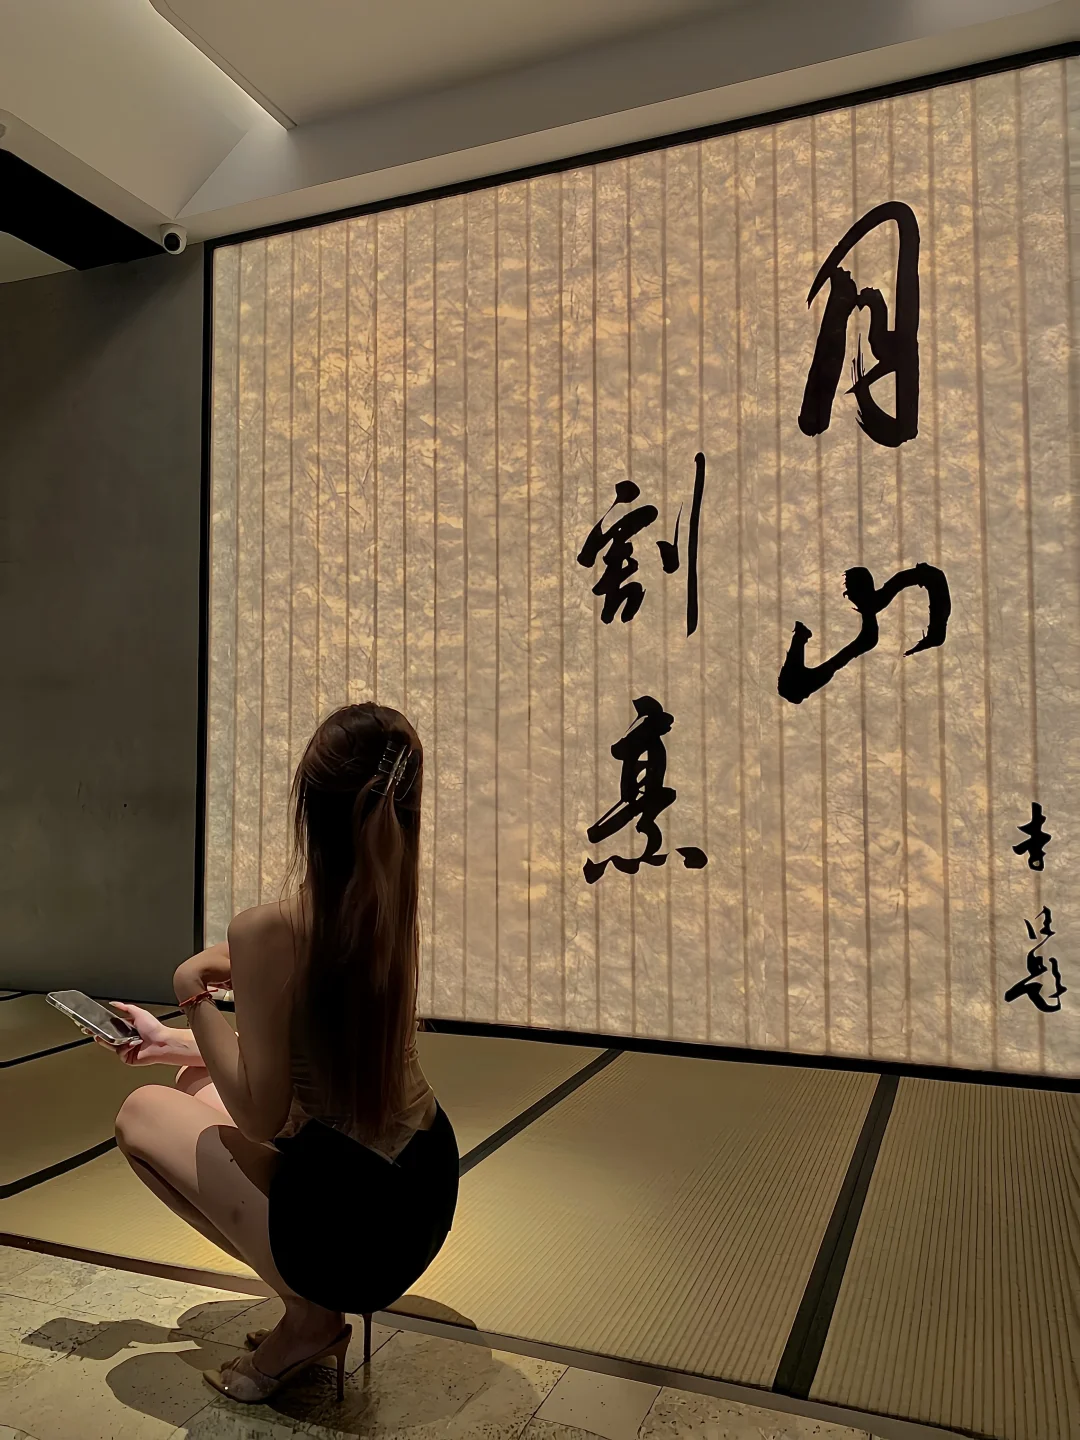 月山
割烹
李 题